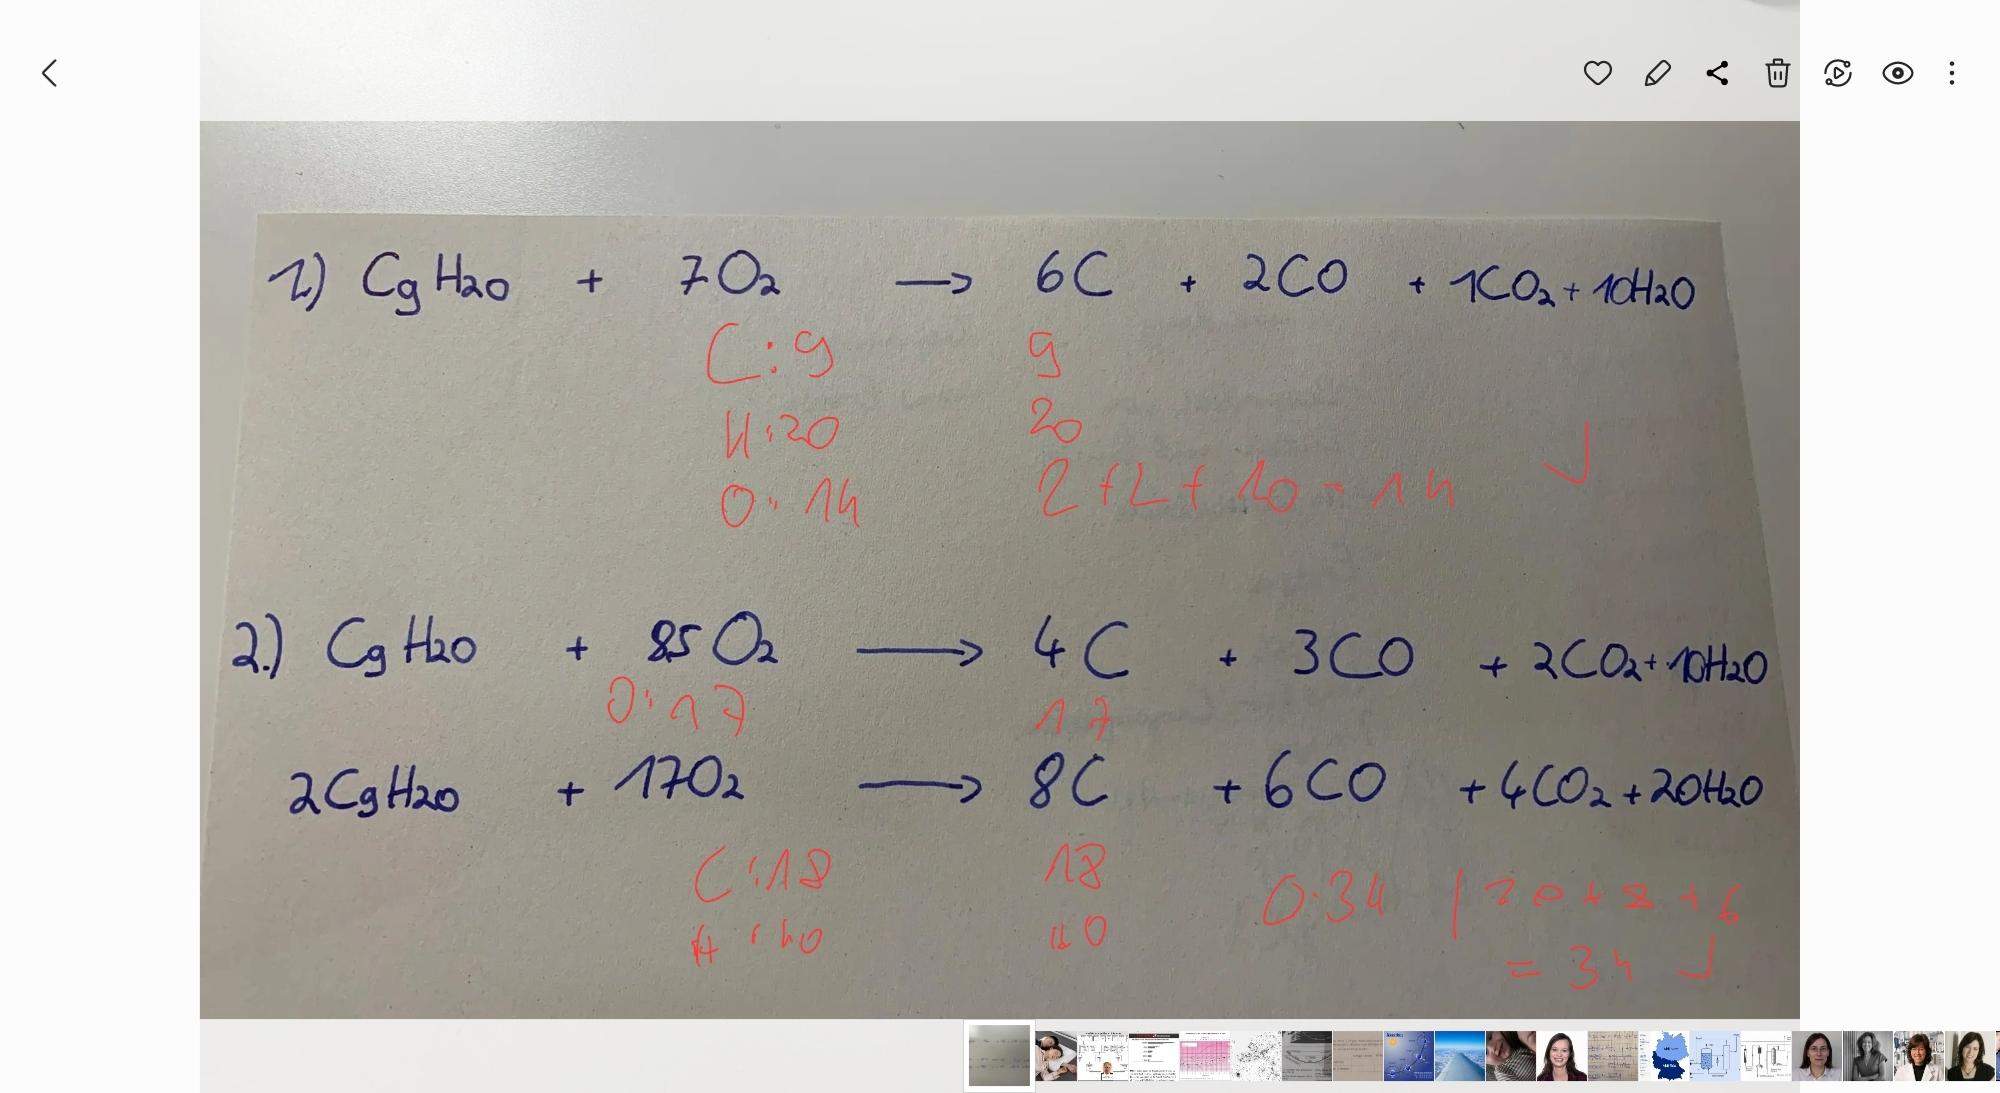 1.) C9H20 + 7O2 → 6C + 2CO + 1CO2 + 10H2O
C: 9 9
H: 20 20
O: 14 2 + 2 + 10 = 14 ✓
2.) C9H20 + 8,5 O2 → 4C + 3CO + 2CO2 + 10H2O
O: 17 17
2C9H20 + 17O2 → 8C + 6CO + 4CO2 + 20H2O
C: 18 18
O: 34 | 20 + 8 + 6
H: 40 40
= 34 ✓